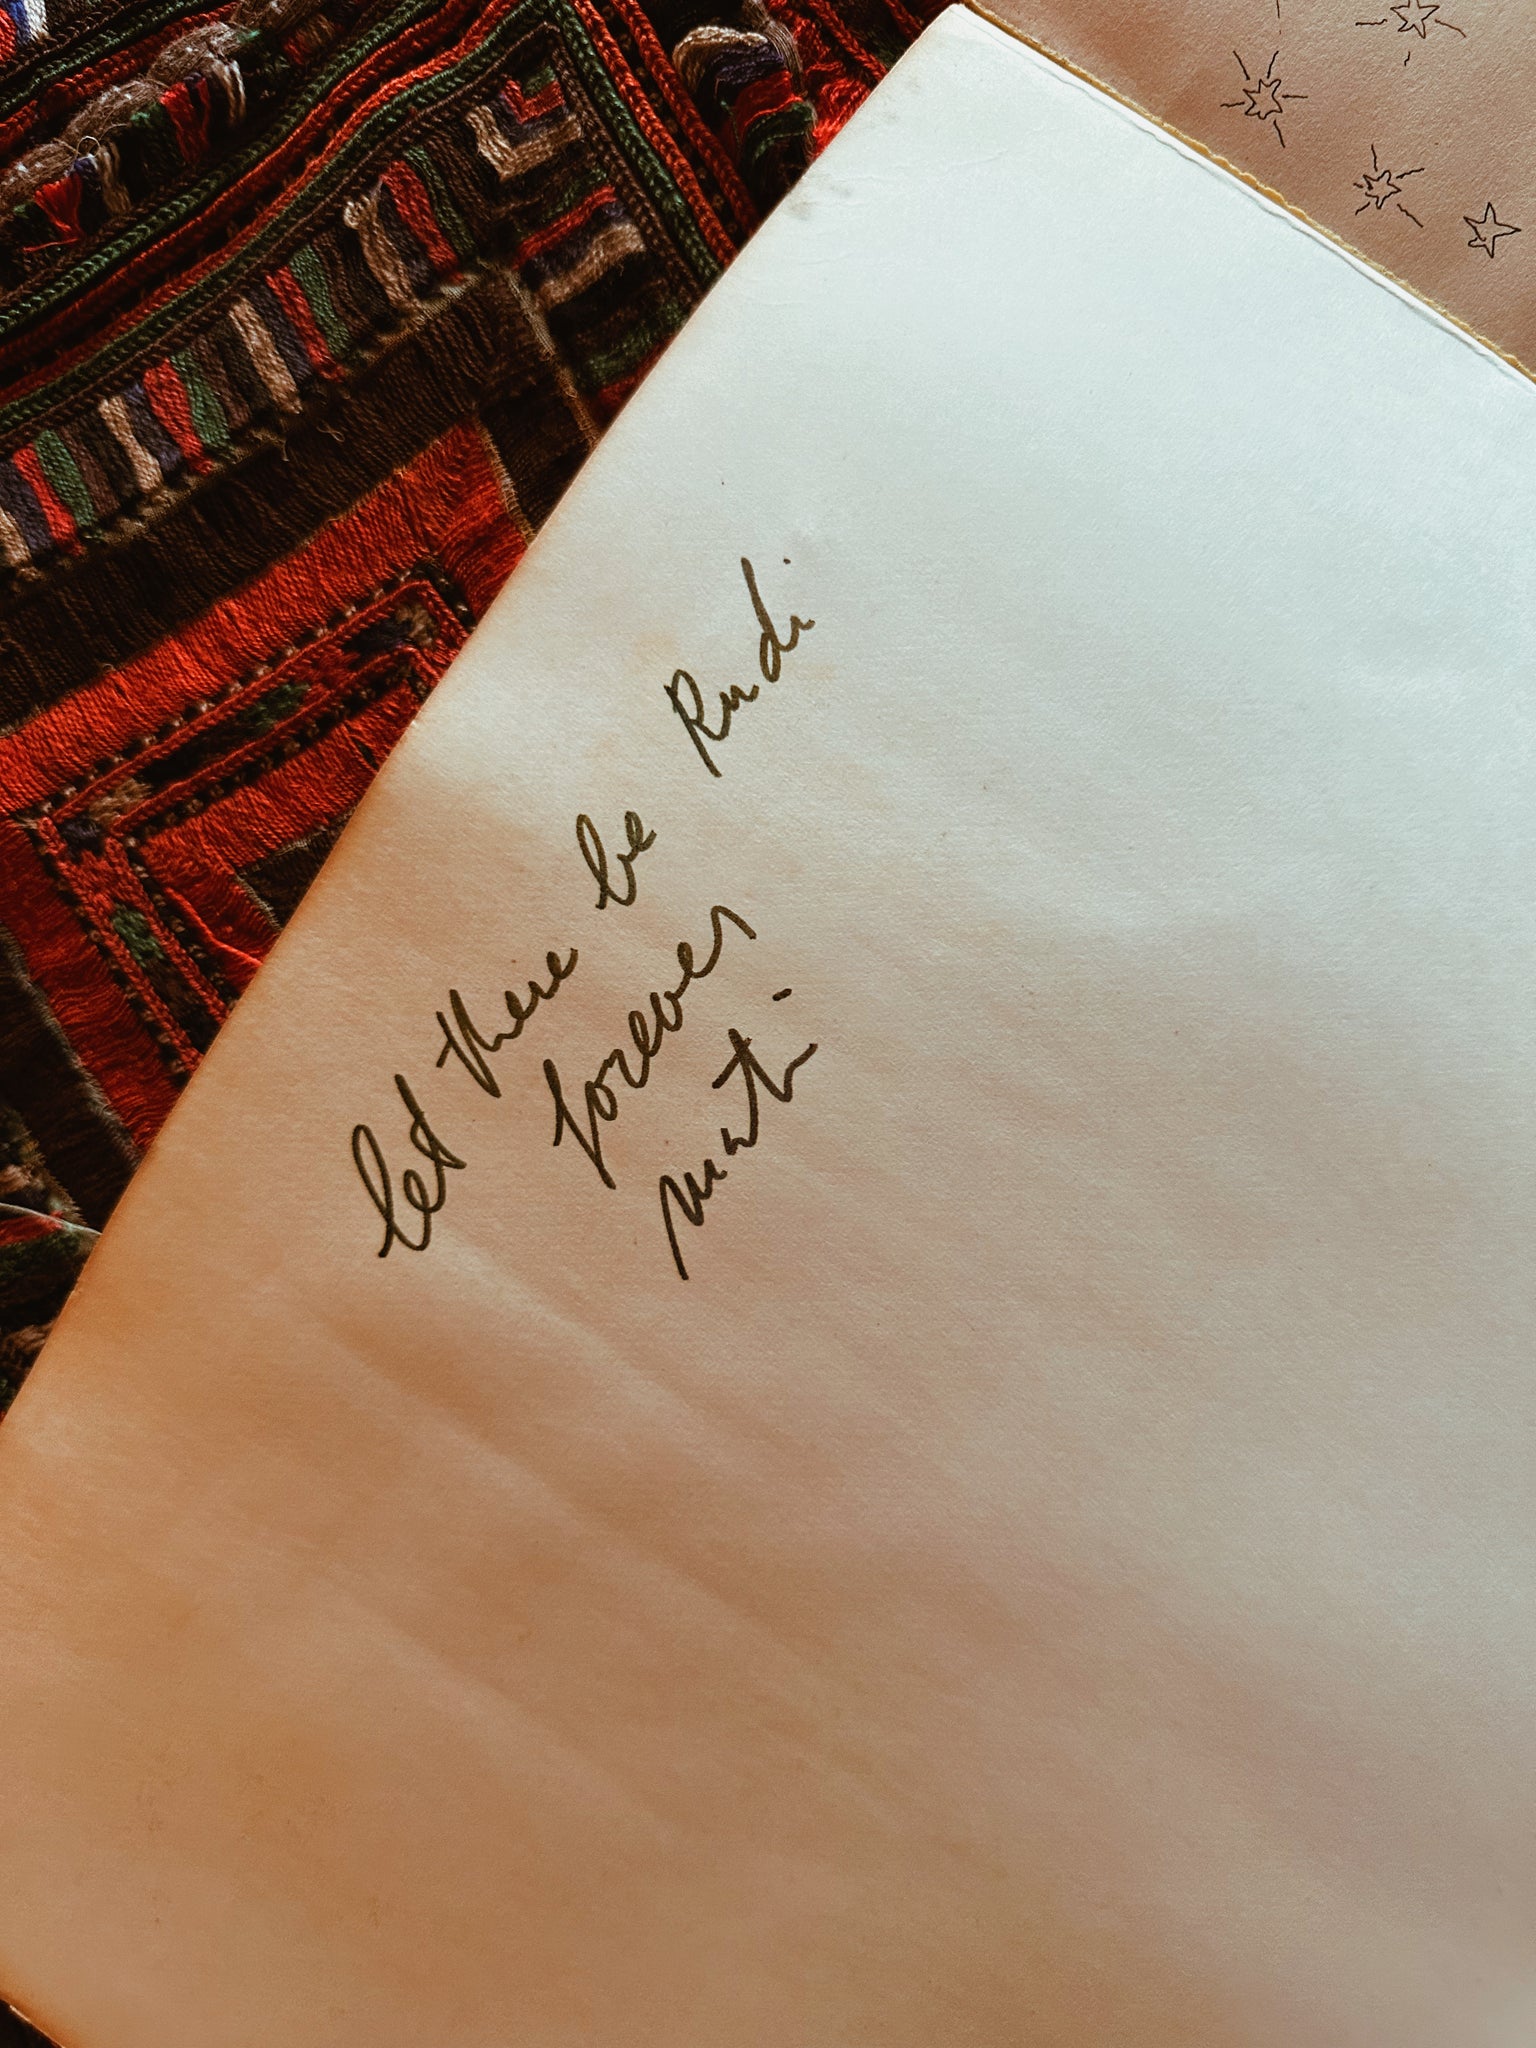 let there be Rudi
forever
Marti